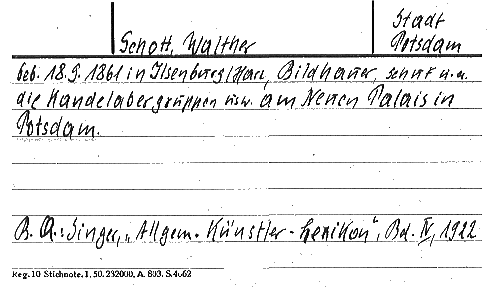 Stadt
Schott, Walther Potsdam
geb. 18.9.1861 in Ilsenburg/Harz, Bildhauer, schuf u.a.
die Kandelabergruppen usw. am Neuen Palais in
Potsdam.
B.A.: Singer, „Allgem. Künstler-Lexikon", Bd. IV, 1922
Reg. 10 Stichnote. 1, 50. 232000, A. 803. S. 4062